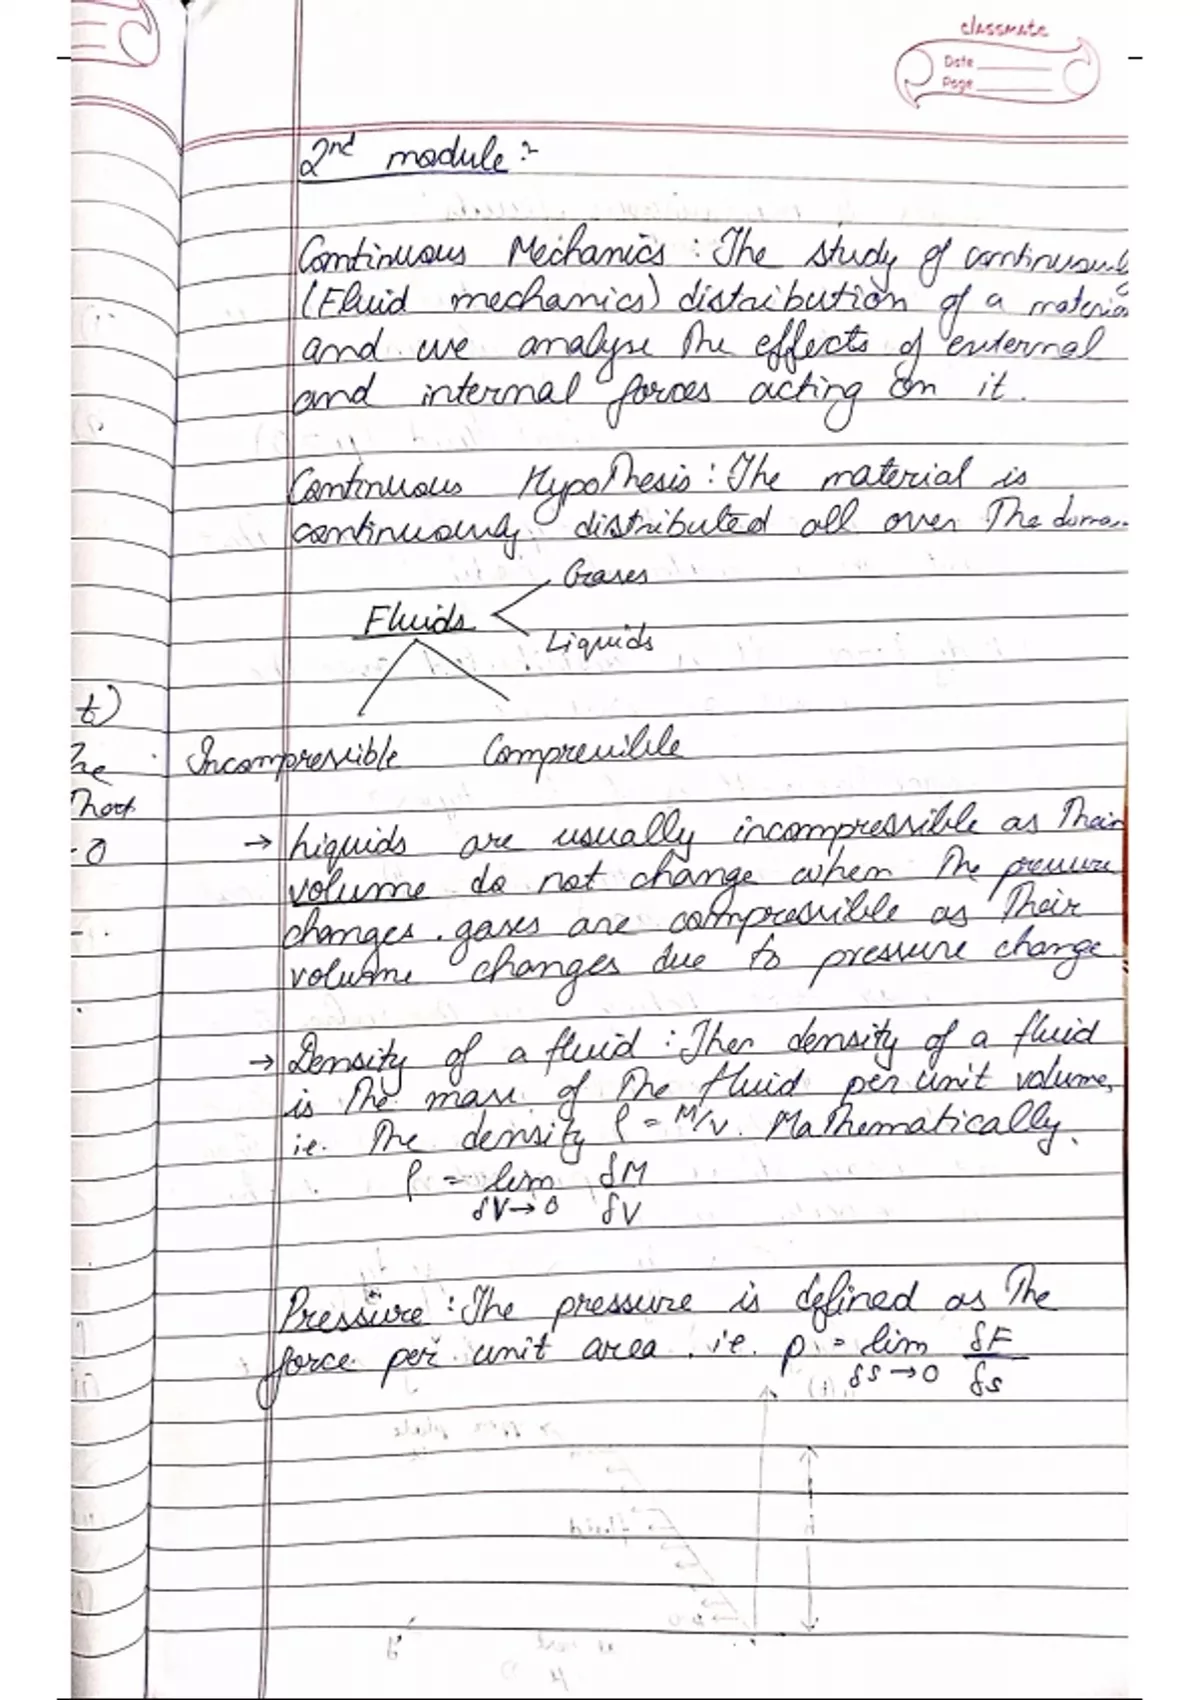 classmate
Date
Page
2nd module :-
Continuous Mechanics : The study of
(Fluid mechanics) distribution of a
and we analyse the effects of external
and internal forces acting on it.
Continuous Hypothesis : The material is
continuously distributed all over The
Gases
Fluids
Liquids
t)
he
That
0
Incompressible Compressible
→ Liquids are usually incompressible as Their
volume do not change when The pressure
changes. gases are compressible as Their
volume changes due to pressure change.
→ Density of a fluid : Ther density of a fluid
is The mass of The fluid per unit volume,
i.e. The density ρ = M/V. Mathematically,
ρ = lim δM
δV→0 δV
Pressure : The pressure is defined as The
force per unit area. i.e. p = lim δF
δs→0 δs